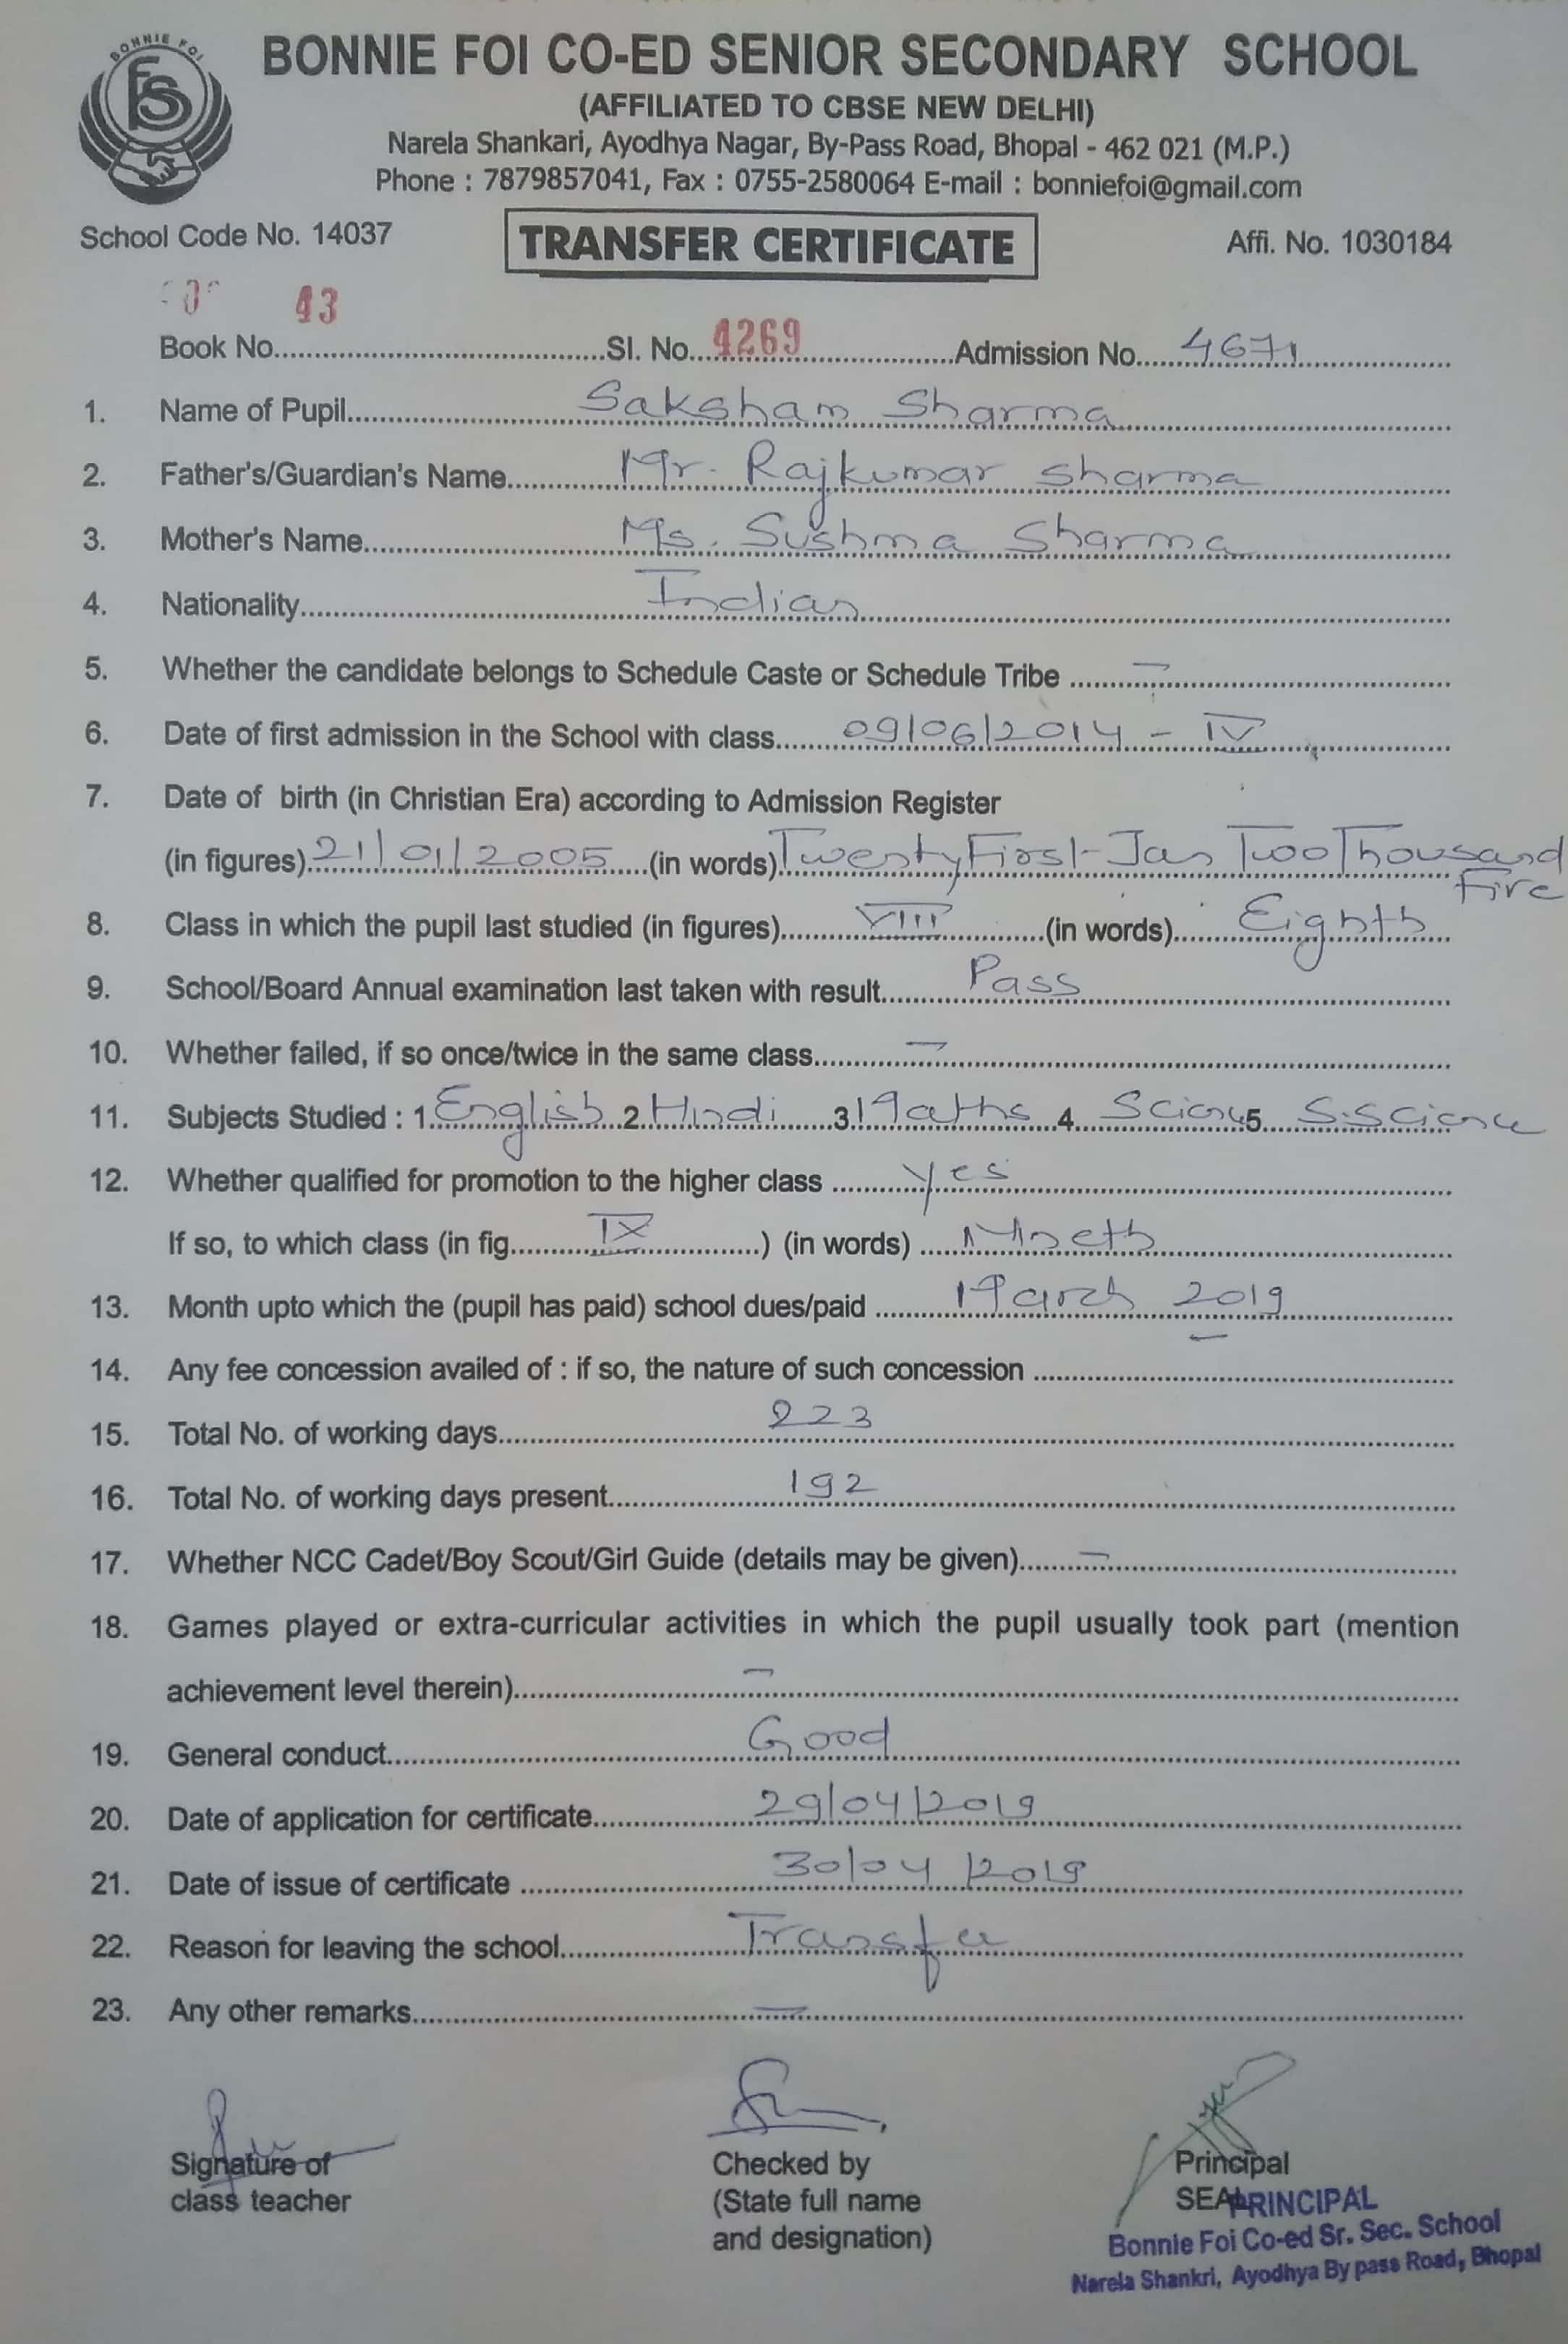 BONNIE FOI
BONNIE FOI CO-ED SENIOR SECONDARY SCHOOL
(AFFILIATED TO CBSE NEW DELHI)
Narela Shankari, Ayodhya Nagar, By-Pass Road, Bhopal - 462 021 (M.P.)
Phone : 7879857041, Fax : 0755-2580064 E-mail : bonniefoi@gmail.com
School Code No. 14037 TRANSFER CERTIFICATE Affi. No. 1030184
Book No. 43 Sl. No. 4269 Admission No. 4671
1. Name of Pupil Saksham Sharma
2. Father's/Guardian's Name Mr. Rajkumar Sharma
3. Mother's Name Ms. Sushma Sharma
4. Nationality Indian
5. Whether the candidate belongs to Schedule Caste or Schedule Tribe —
6. Date of first admission in the School with class 09/06/2014 - IV
7. Date of birth (in Christian Era) according to Admission Register
(in figures) 21/01/2005 (in words) Twenty First Jan Two Thousand
Five
8. Class in which the pupil last studied (in figures) VIII (in words) Eighth
9. School/Board Annual examination last taken with result Pass
10. Whether failed, if so once/twice in the same class —
11. Subjects Studied : 1. English 2. Hindi 3. Maths 4. Science 5. S.Science
12. Whether qualified for promotion to the higher class yes
If so, to which class (in fig. IX ) (in words) Nineth
13. Month upto which the (pupil has paid) school dues/paid March 2019
14. Any fee concession availed of : if so, the nature of such concession —
15. Total No. of working days 223
16. Total No. of working days present 192
17. Whether NCC Cadet/Boy Scout/Girl Guide (details may be given) —
18. Games played or extra-curricular activities in which the pupil usually took part (mention
achievement level therein) —
19. General conduct Good
20. Date of application for certificate 29/04/2019
21. Date of issue of certificate 30/04/2019
22. Reason for leaving the school Transfer
23. Any other remarks —
Signature of Checked by Principal
class teacher (State full name SEAL PRINCIPAL
and designation) Bonnie Foi Co-ed Sr. Sec. School
Narela Shankri, Ayodhya By pass Road, Bhopal